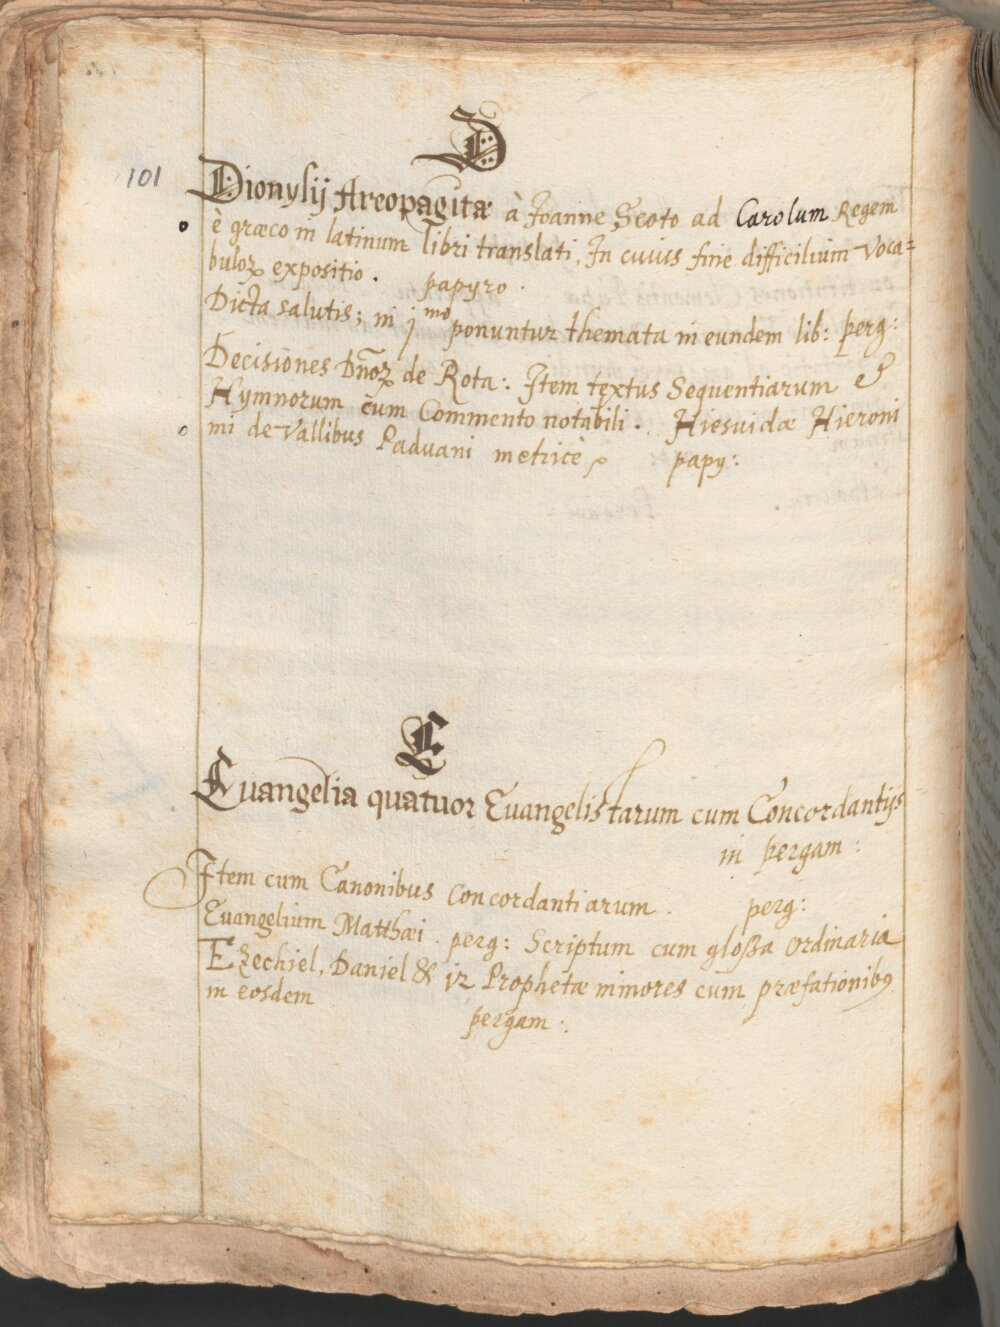 D
101
Dionysij Areopagitæ à Joanne Scoto ad Carolum Regem
è græco in latinum libri translati, In cuius fine difficilium voca=
buloꝝ expositio. papyro.
Dicta salutis; in j^mo ponuntur themata in eundem lib: perg:
Decisiones Dñoꝝ de Rota:. Item textus Sequentiarum &
Hymnorum cum Commento notabili. Hiesuidæ Hieroni
mi de Vallibus Paduani metricè papy:
E
Euangelia quatuor Euangelistarum cum Concordantijs
in pergam:
Item cum Canonibus concordantiarum. perg:
Euangelium Matthæi. perg: Scriptum cum gloßa ordinaria
Ezechiel, Daniel & 12 Prophetæ minores cum præfationibꝰ
in eosdem
pergam:.